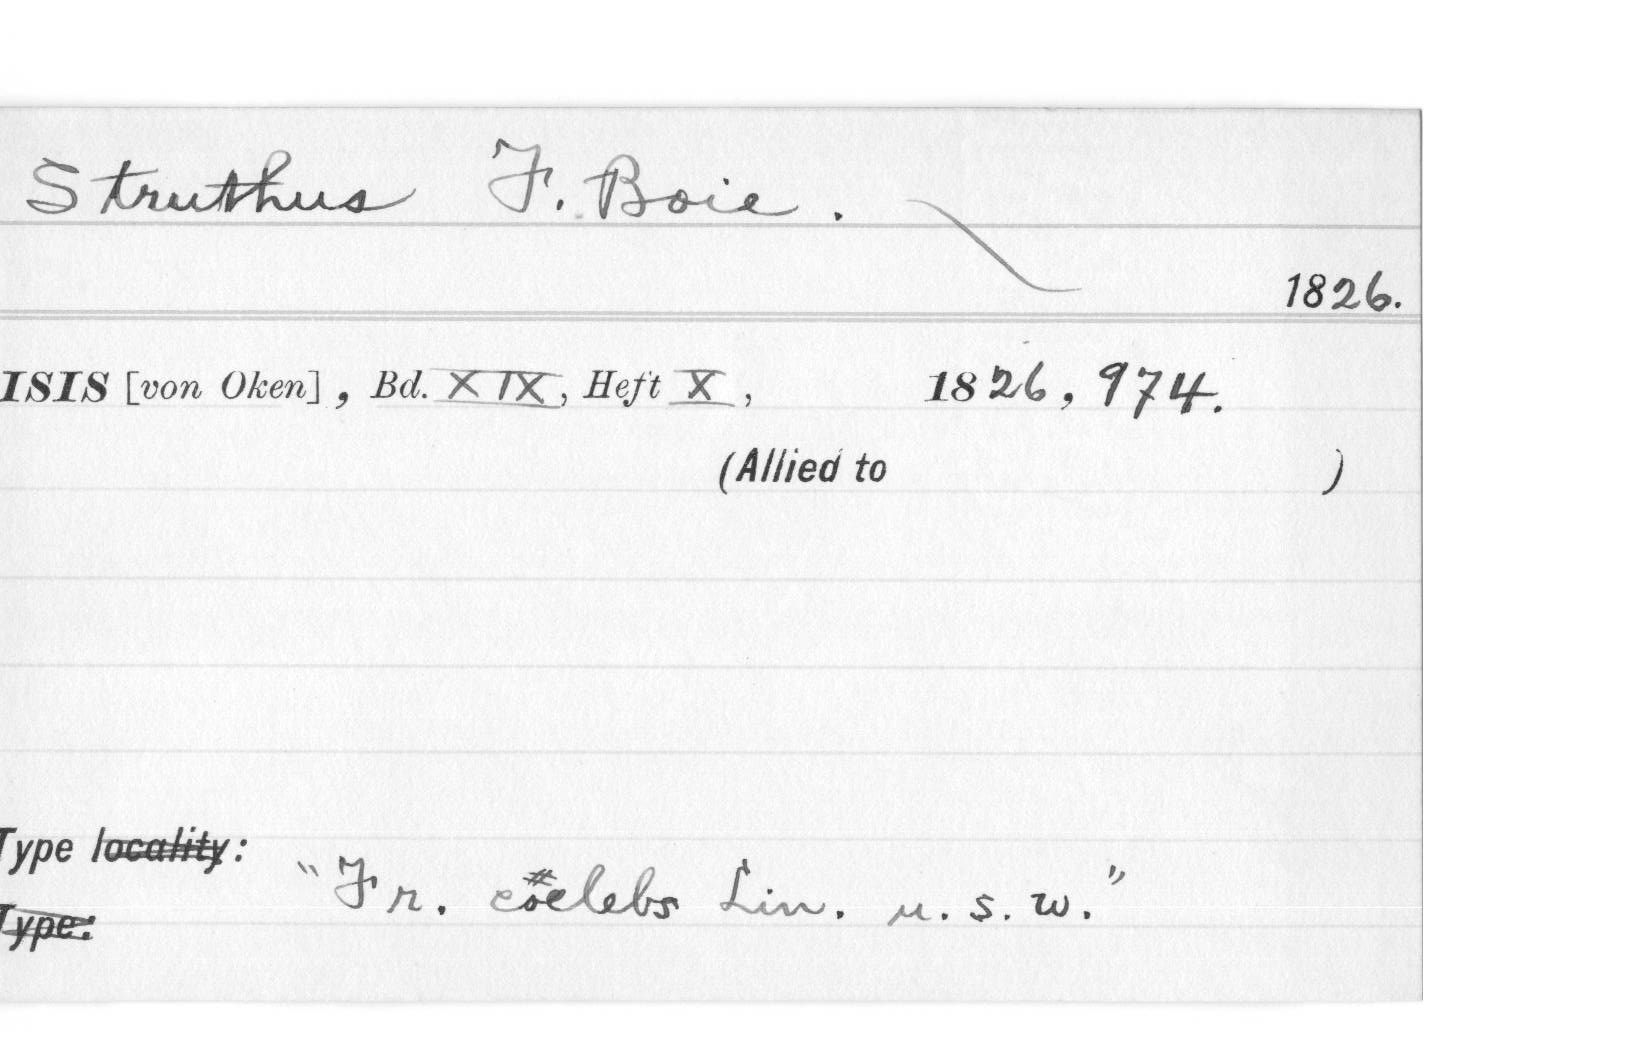 Struthus F. Boie.
1826.
ISIS [von Oken], Bd. XIX, Heft X, 1826, 974.
(Allied to )
Type locality:
"Fr. cœlebs Lin. u. s. w."
Type: